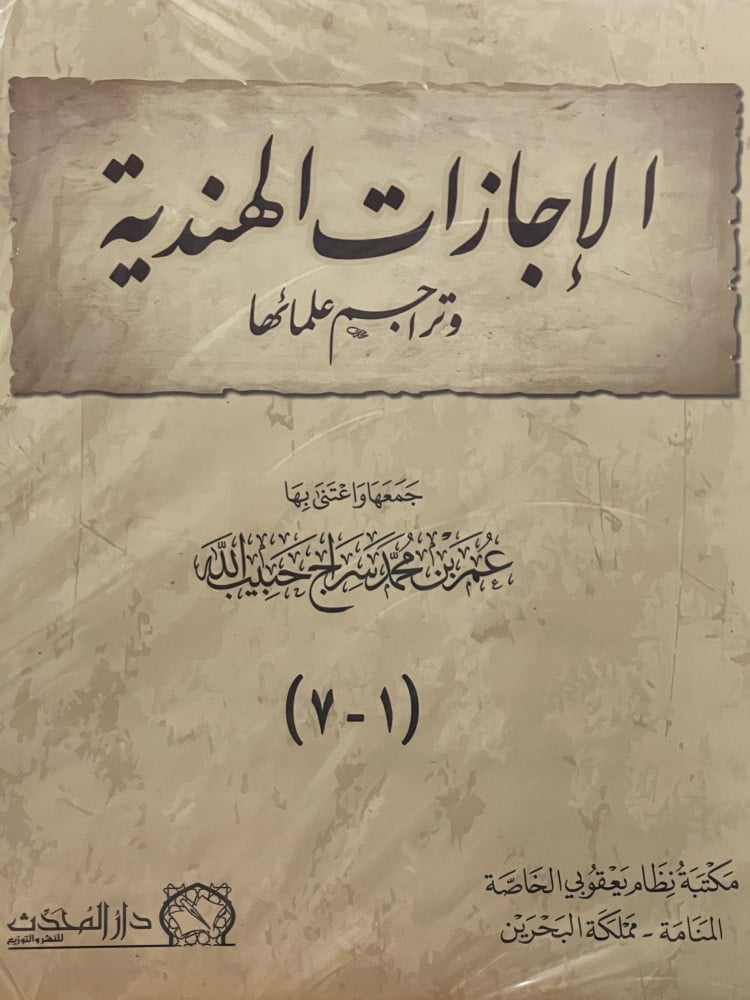 الإجازات الهندية
وتراجم علمائها
جَمَعَهَا وَاعْتَنَى بِهَا
عُمَر بْن مُحَمَّد سَرَاج حَبِيب اللَّه
(١ - ٧)
مَكْتَبَةُ نِظَام يَعْقُوبي الخَاصَّة
المَنَامَة - مَمْلَكَة البَحْرَيْن
دار المحدث
للنشر والتوزيع